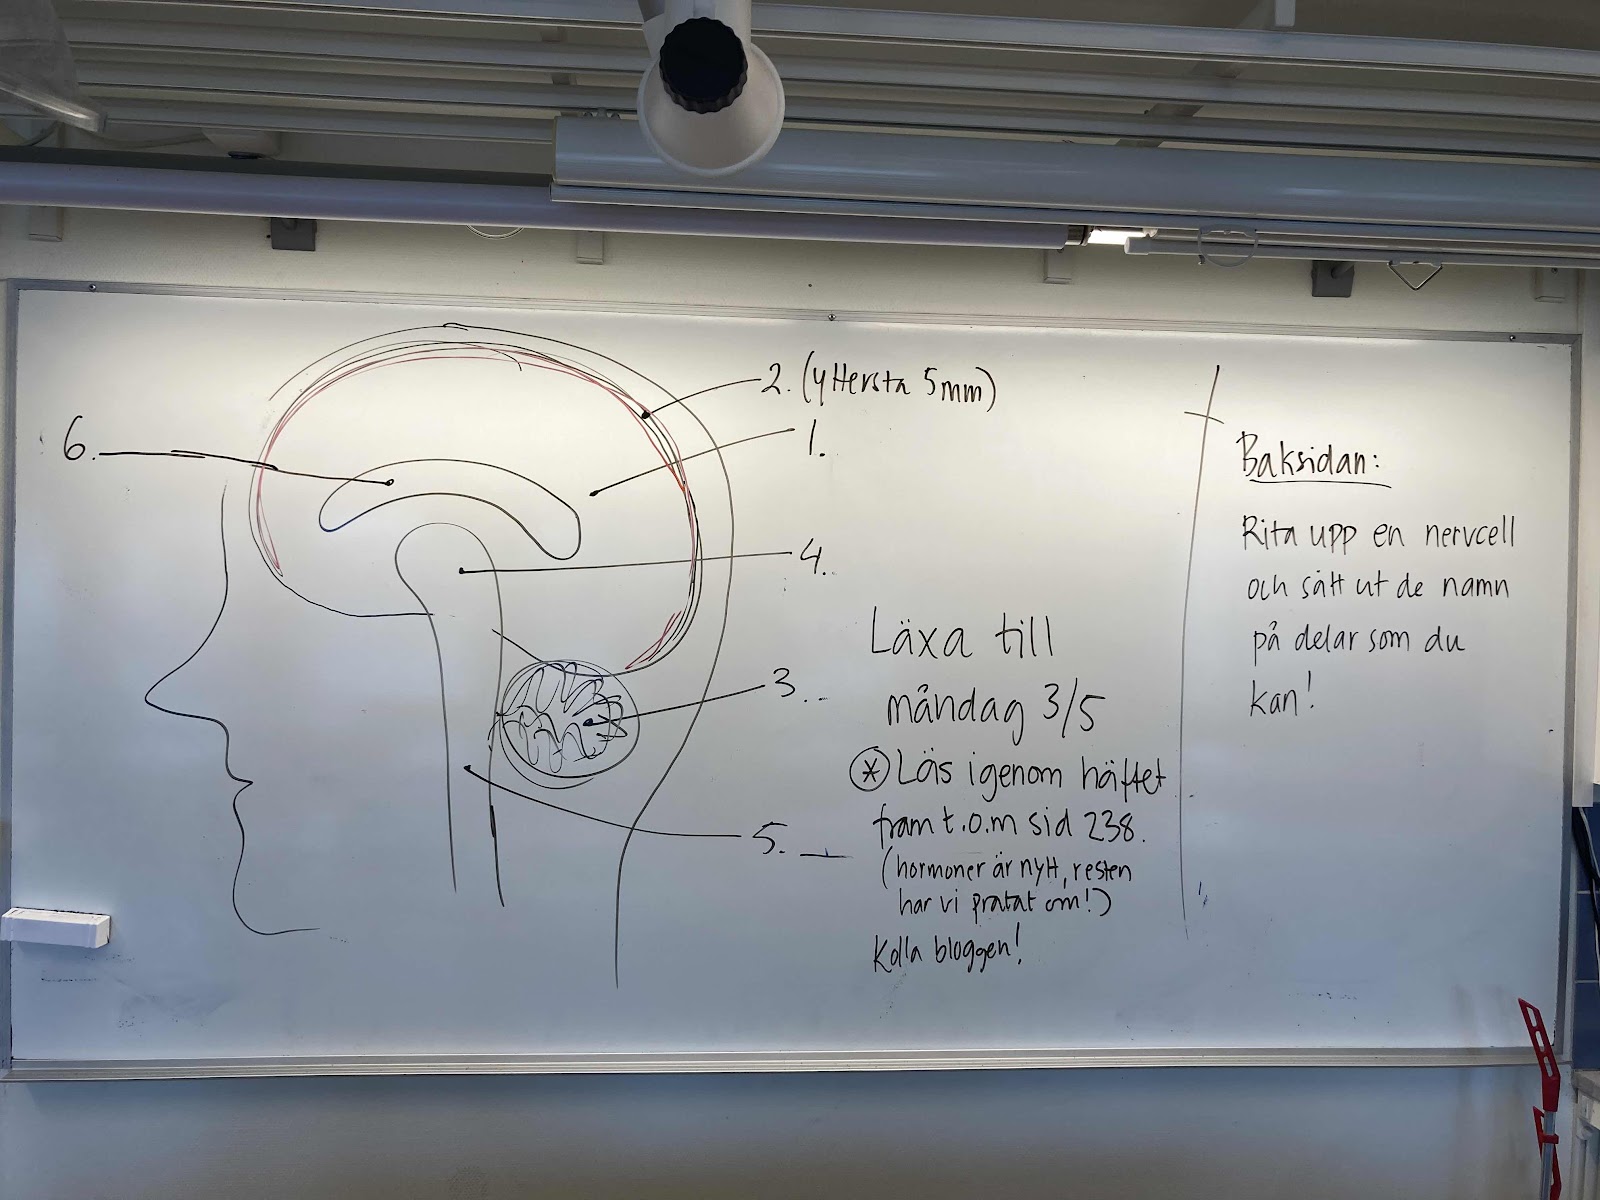 2. (yttersta 5mm)
1.
6.
4.
3.
5.
Läxa till
måndag 3/5
* Läs igenom häftet
fram t.o.m sid 238.
(hormoner är nytt, resten
har vi pratat om!)
Kolla bloggen!
Baksidan:
Rita upp en nervcell
och sätt ut de namn
på delar som du
kan!